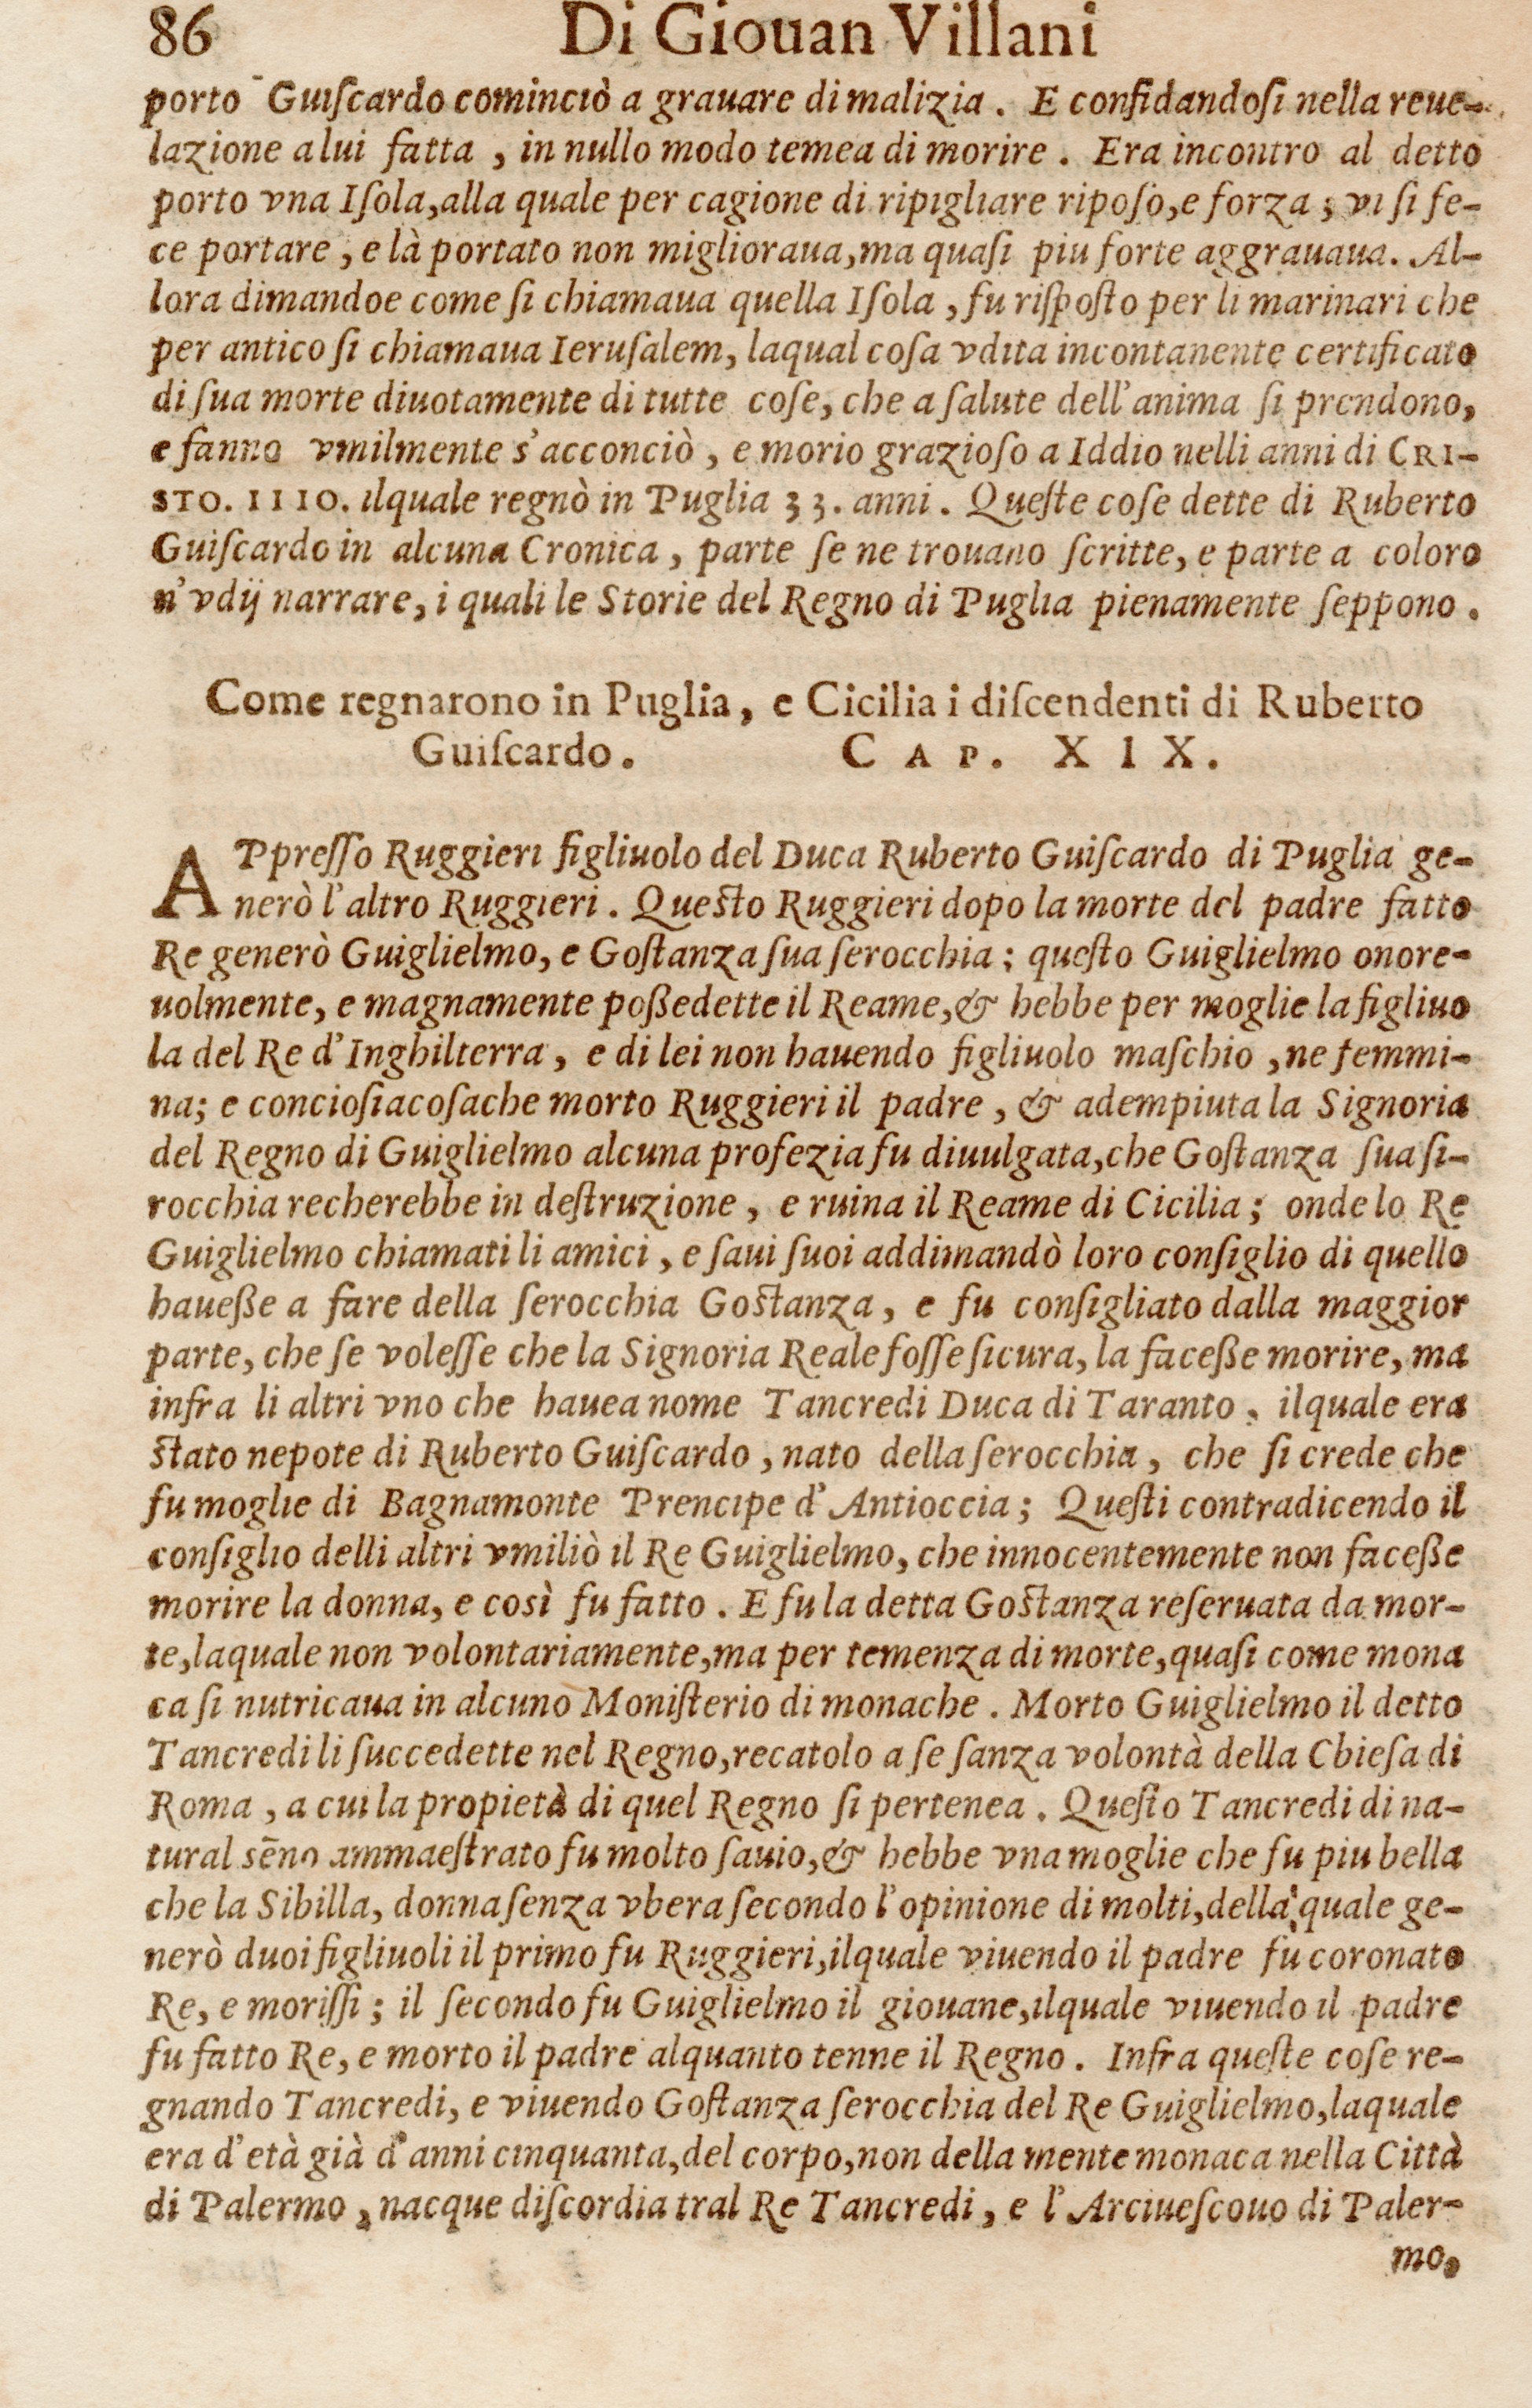 86 Di Giouan Villani
porto Guiſcardo cominciò a grauare di malizia. E confidandoſi nella reue-
lazione a lui fatta, in nullo modo temea di morire. Era incontro al detto
porto vna Iſola, alla quale per cagione di ripigliare ripoſo, e forza; vi ſi fe-
ce portare, e là portato non miglioraua, ma quaſi piu forte aggrauaua. Al-
lora dimandoe come ſi chiamaua quella Iſola, fu riſpoſto per li marinari che
per antico ſi chiamaua Ieruſalem, laqual coſa vdita incontanente certificato
di ſua morte diuotamente di tutte coſe, che a ſalute dell'anima ſi prendono,
e fanno vmilmente s'acconciò, e morio grazioſo a Iddio nelli anni di CRI-
STO. 1110. ilquale regnò in Puglia 33. anni. Queſte coſe dette di Ruberto
Guiſcardo in alcuna Cronica, parte ſe ne trouano ſcritte, e parte a coloro
n'vdij narrare, i quali le Storie del Regno di Puglia pienamente ſeppono.
Come regnarono in Puglia, e Cicilia i diſcendenti di Ruberto
Guiſcardo. CAP. XIX.
APpreſſo Ruggieri figliuolo del Duca Ruberto Guiſcardo di Puglia ge-
nerò l'altro Ruggieri. Queſto Ruggieri dopo la morte del padre fatto
Re generò Guiglielmo, e Goſtanza ſua ſerocchia; queſto Guiglielmo onore-
uolmente, e magnamente poßedette il Reame, & hebbe per moglie la figliuo
la del Re d'Inghilterra, e di lei non hauendo figliuolo maſchio, ne femmi-
na; e concioſiacoſache morto Ruggieri il padre, & adempiuta la Signoria
del Regno di Guiglielmo alcuna profezia fu diuulgata, che Goſtanza ſua ſi-
rocchia recherebbe in deſtruzione, e ruina il Reame di Cicilia; onde lo Re
Guiglielmo chiamati li amici, e ſaui ſuoi addimandò loro conſiglio di quello
haueße a fare della ſerocchia Goſtanza, e fu conſigliato dalla maggior
parte, che ſe voleſſe che la Signoria Reale foſſe ſicura, la faceße morire, ma
infra li altri vno che hauea nome Tancredi Duca di Taranto, ilquale era
ſtato nepote di Ruberto Guiſcardo, nato della ſerocchia, che ſi crede che
fu moglie di Bagnamonte Prencipe d'Antioccia; Queſti contradicendo il
conſiglio delli altri vmiliò il Re Guiglielmo, che innocentemente non faceße
morire la donna, e così fu fatto. E fu la detta Goſtanza reſeruata da mor-
te, laquale non volontariamente, ma per temenza di morte, quaſi come mona
ca ſi nutricaua in alcuno Moniſterio di monache. Morto Guiglielmo il detto
Tancredi li ſuccedette nel Regno, recatolo a ſe ſanza volontà della Chieſa di
Roma, a cui la propietà di quel Regno ſi pertenea. Queſto Tancredi di na-
tural sēno ammaeſtrato fu molto ſauio, & hebbe vna moglie che fu piu bella
che la Sibilla, donna ſenza vbera ſecondo l'opinione di molti, della quale ge-
nerò duoi figliuoli il primo fu Ruggieri, ilquale viuendo il padre fu coronato
Re, e moriſſi; il ſecondo fu Guiglielmo il giouane, ilquale viuendo il padre
fu fatto Re, e morto il padre alquanto tenne il Regno. Infra queſte coſe re-
gnando Tancredi, e viuendo Goſtanza ſerocchia del Re Guiglielmo, laquale
era d'età già d'anni cinquanta, del corpo, non della mente monaca nella Città
di Palermo, nacque diſcordia tral Re Tancredi, e l'Arciueſcouo di Paler-
mo,